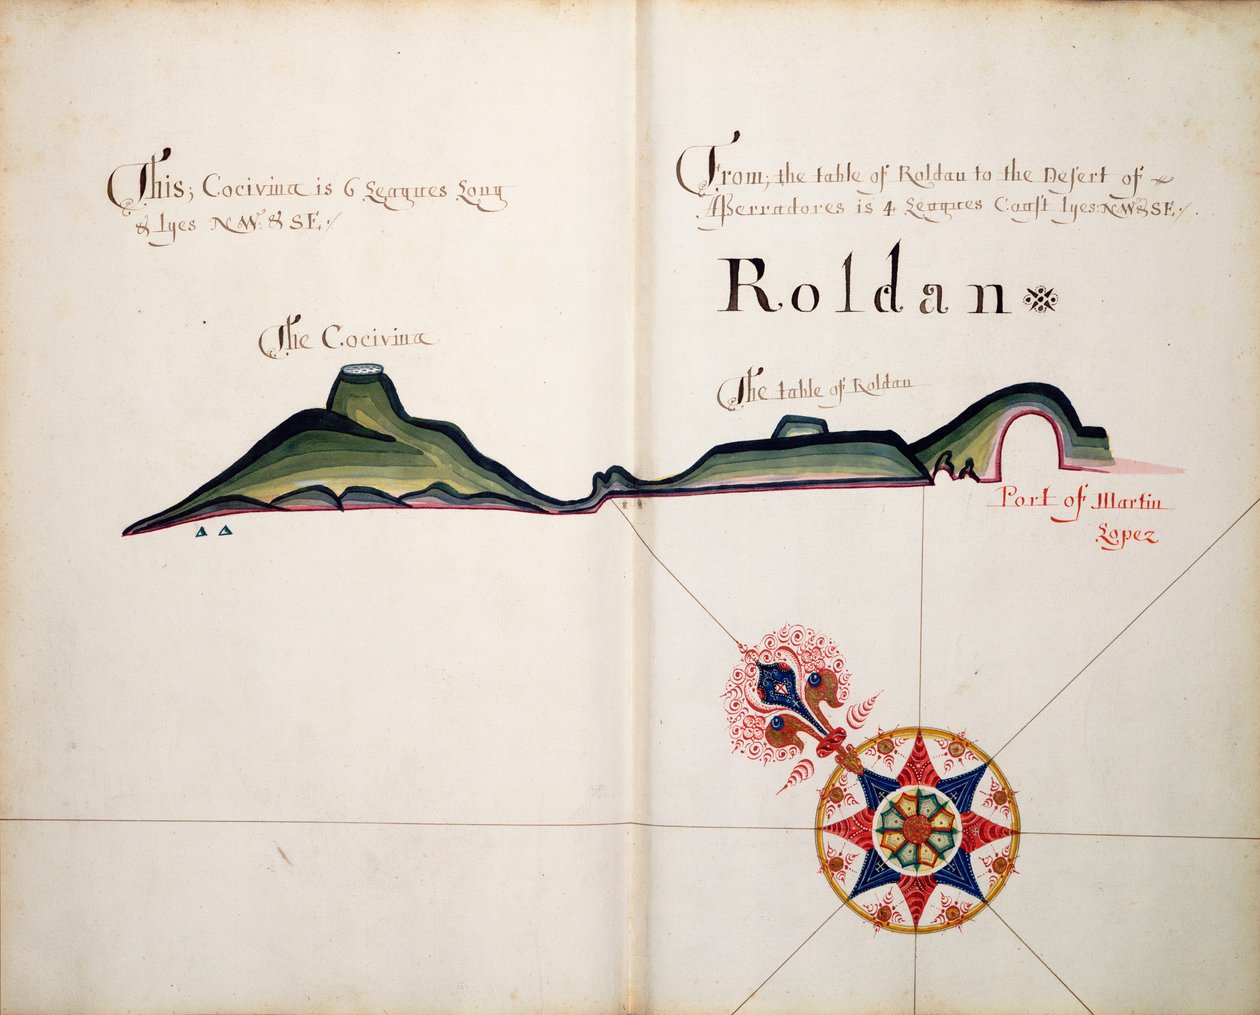 This; Cocivina is 6 Leagues Long
& lyes NW. & SE./
The Cocivina
From; the table of Roldan to the Desert of
Asserradores is 4 Leagues Coast lyes: NW & SE/.
Roldan
The table of Roldan
Port of Martin
Lopez